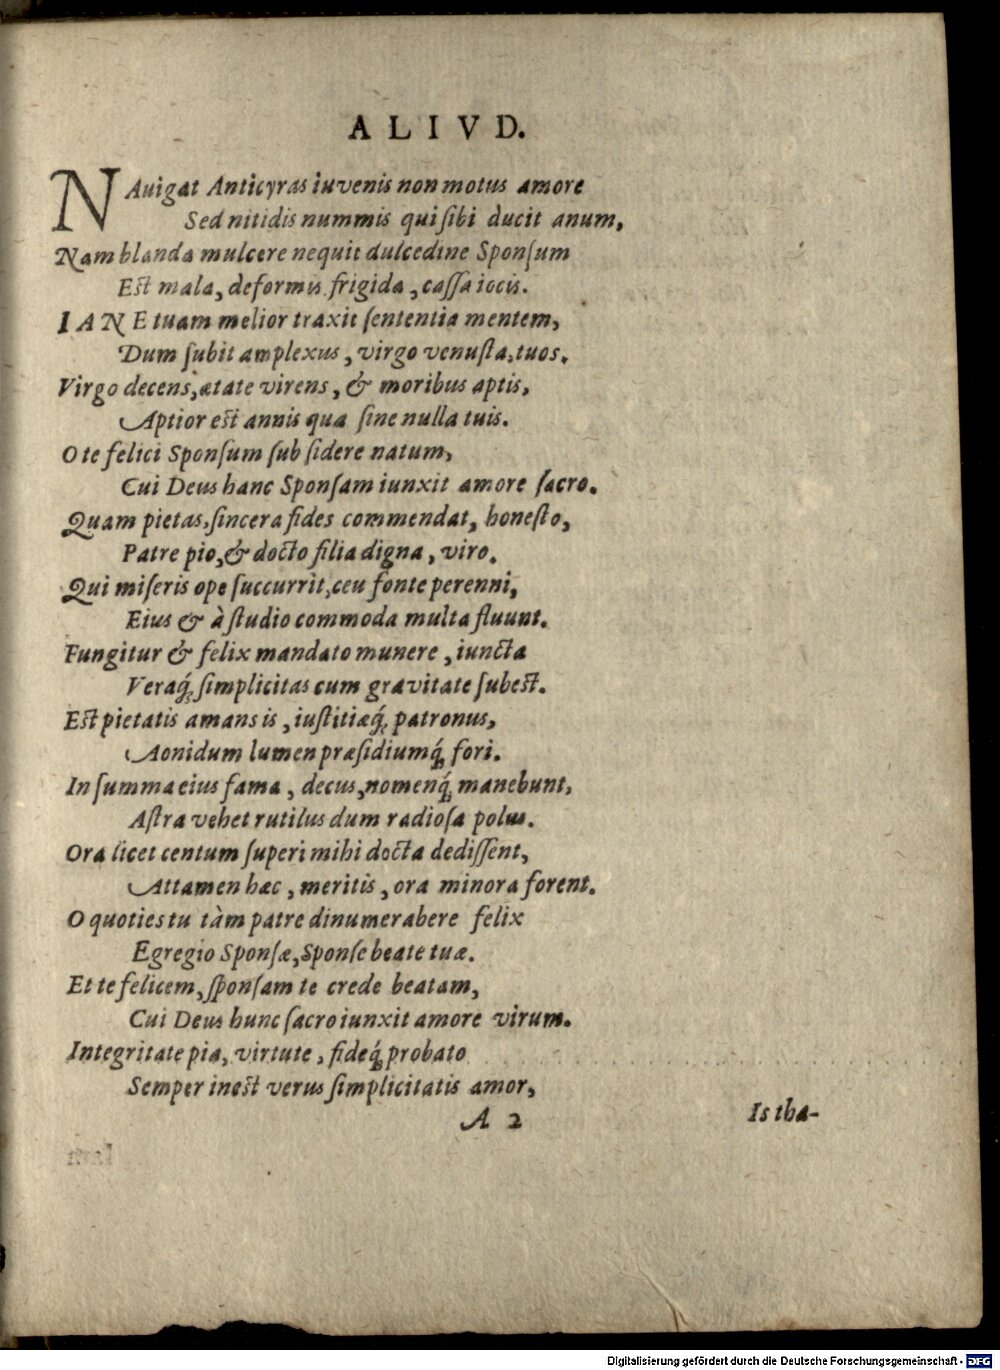 ALIVD.
NAuigat Anticyras iuvenis non motus amore
Sed nitidis nummis qui sibi ducit anum,
Nam blanda mulcere nequit dulcedine Sponsum
Est mala, deformis frigida, cassa iocis.
IANE tuam melior traxit sententia mentem,
Dum subit amplexus, virgo venusta, tuos.
Virgo decens, ætate virens, & moribus aptis,
Aptior est annis qua sine nulla tuis.
O te felici Sponsum sub sidere natum,
Cui Deus hanc Sponsam iunxit amore sacro.
Quam pietas, sincera fides commendat, honesto,
Patre pio, & docto filia digna, viro.
Qui miseris ope succurrit, ceu fonte perenni,
Eius & à studio commoda multa fluunt.
Fungitur & felix mandato munere, iuncta
Veraq́; simplicitas cum gravitate subest.
Est pietatis amans is, iustitiæq́; patronus,
Aonidum lumen præsidiumq́; fori.
In summa eius fama, decus, nomenq́; manebunt,
Astra vehet rutilus dum radiosa polus.
Ora licet centum superi mihi docta dedissent,
Attamen hæc, meritis, ora minora forent.
O quoties tu tàm patre dinumerabere felix
Egregio Sponsæ, Sponse beate tuæ.
Et te felicem, sponsam te crede beatam,
Cui Deus hunc sacro iunxit amore virum.
Integritate pia, virtute, fideq́; probato
Semper inest verus simplicitatis amor,
A 2 Is tha-
Digitalisierung gefördert durch die Deutsche Forschungsgemeinschaft - DFG